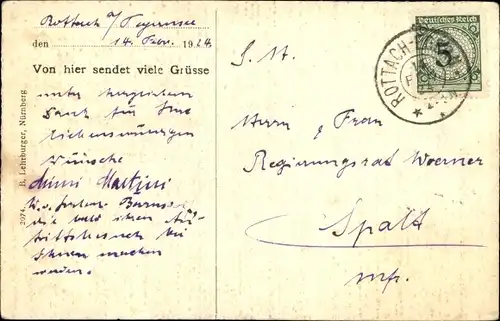 Rottach a/Tegernsee
den 14. Febr. 1924
Von hier sendet viele Grüsse
unter herzlichem
Dank für Ihre
liebenswürdigen
Wünsche
Mimi Martini
die bald ihren
bei
Ihnen machen
werden.
2974. B. Lehrburger, Nürnberg
Deutsches Reich
5
ROTTACH-
S. H.
Herrn & Frau
Regierungsrat Woerner
Spalt
Mfr.